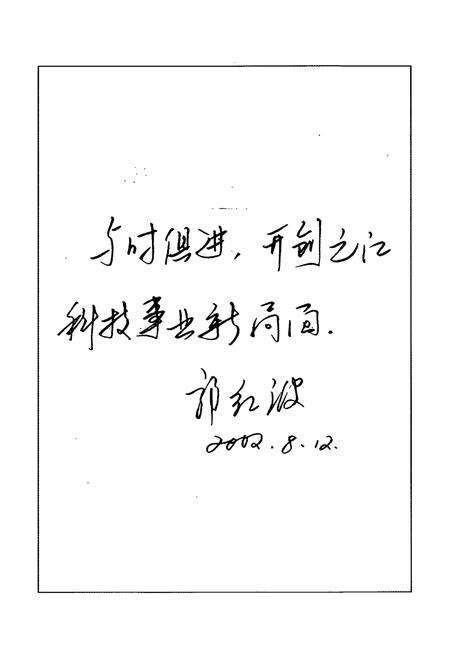 与时俱进，开创之江
科技事业新局面.
郭红波
2002.8.12.